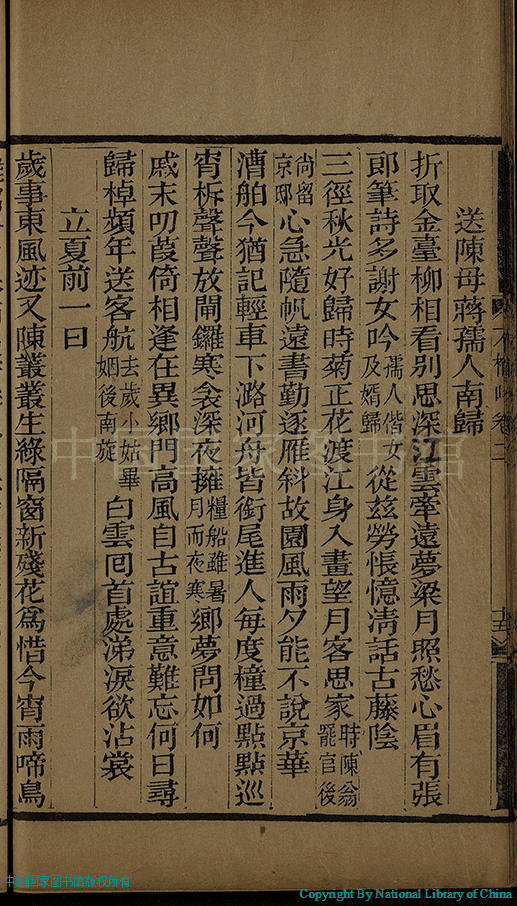 送陳母蔣孺人南歸
折取金臺柳相看別思深江雲牽遠夢梁月照愁心眉有張
郎筆詩多謝女吟孺人偕女及婿歸從茲勞悵憶清話古藤陰
三徑秋光好歸時菊正花渡江身入畫望月客思家時陳翁罷官後
尚留京邸心急隨帆遠書勤逐雁斜故園風雨夕能不說京華
漕舶今猶記輕車下潞河舟皆銜尾進人每度橦過點點巡
宵柝聲聲放閘鑼寒衾深夜擁糧船雖暑月而夜寒鄉夢問如何
戚末叨葭倚相逢在異鄉門高風自古誼重意難忘何日尋
歸棹頻年送客航去歲小姑畢姻後南旋白雲回首處涕淚欲沾裳
立夏前一日
歲事東風迹又陳叢叢生綠隔窗新殘花爲惜今宵雨啼鳥
卷二
十五
中国国家图书馆
中国国家图书馆版权所有
Copyright By National Library of China